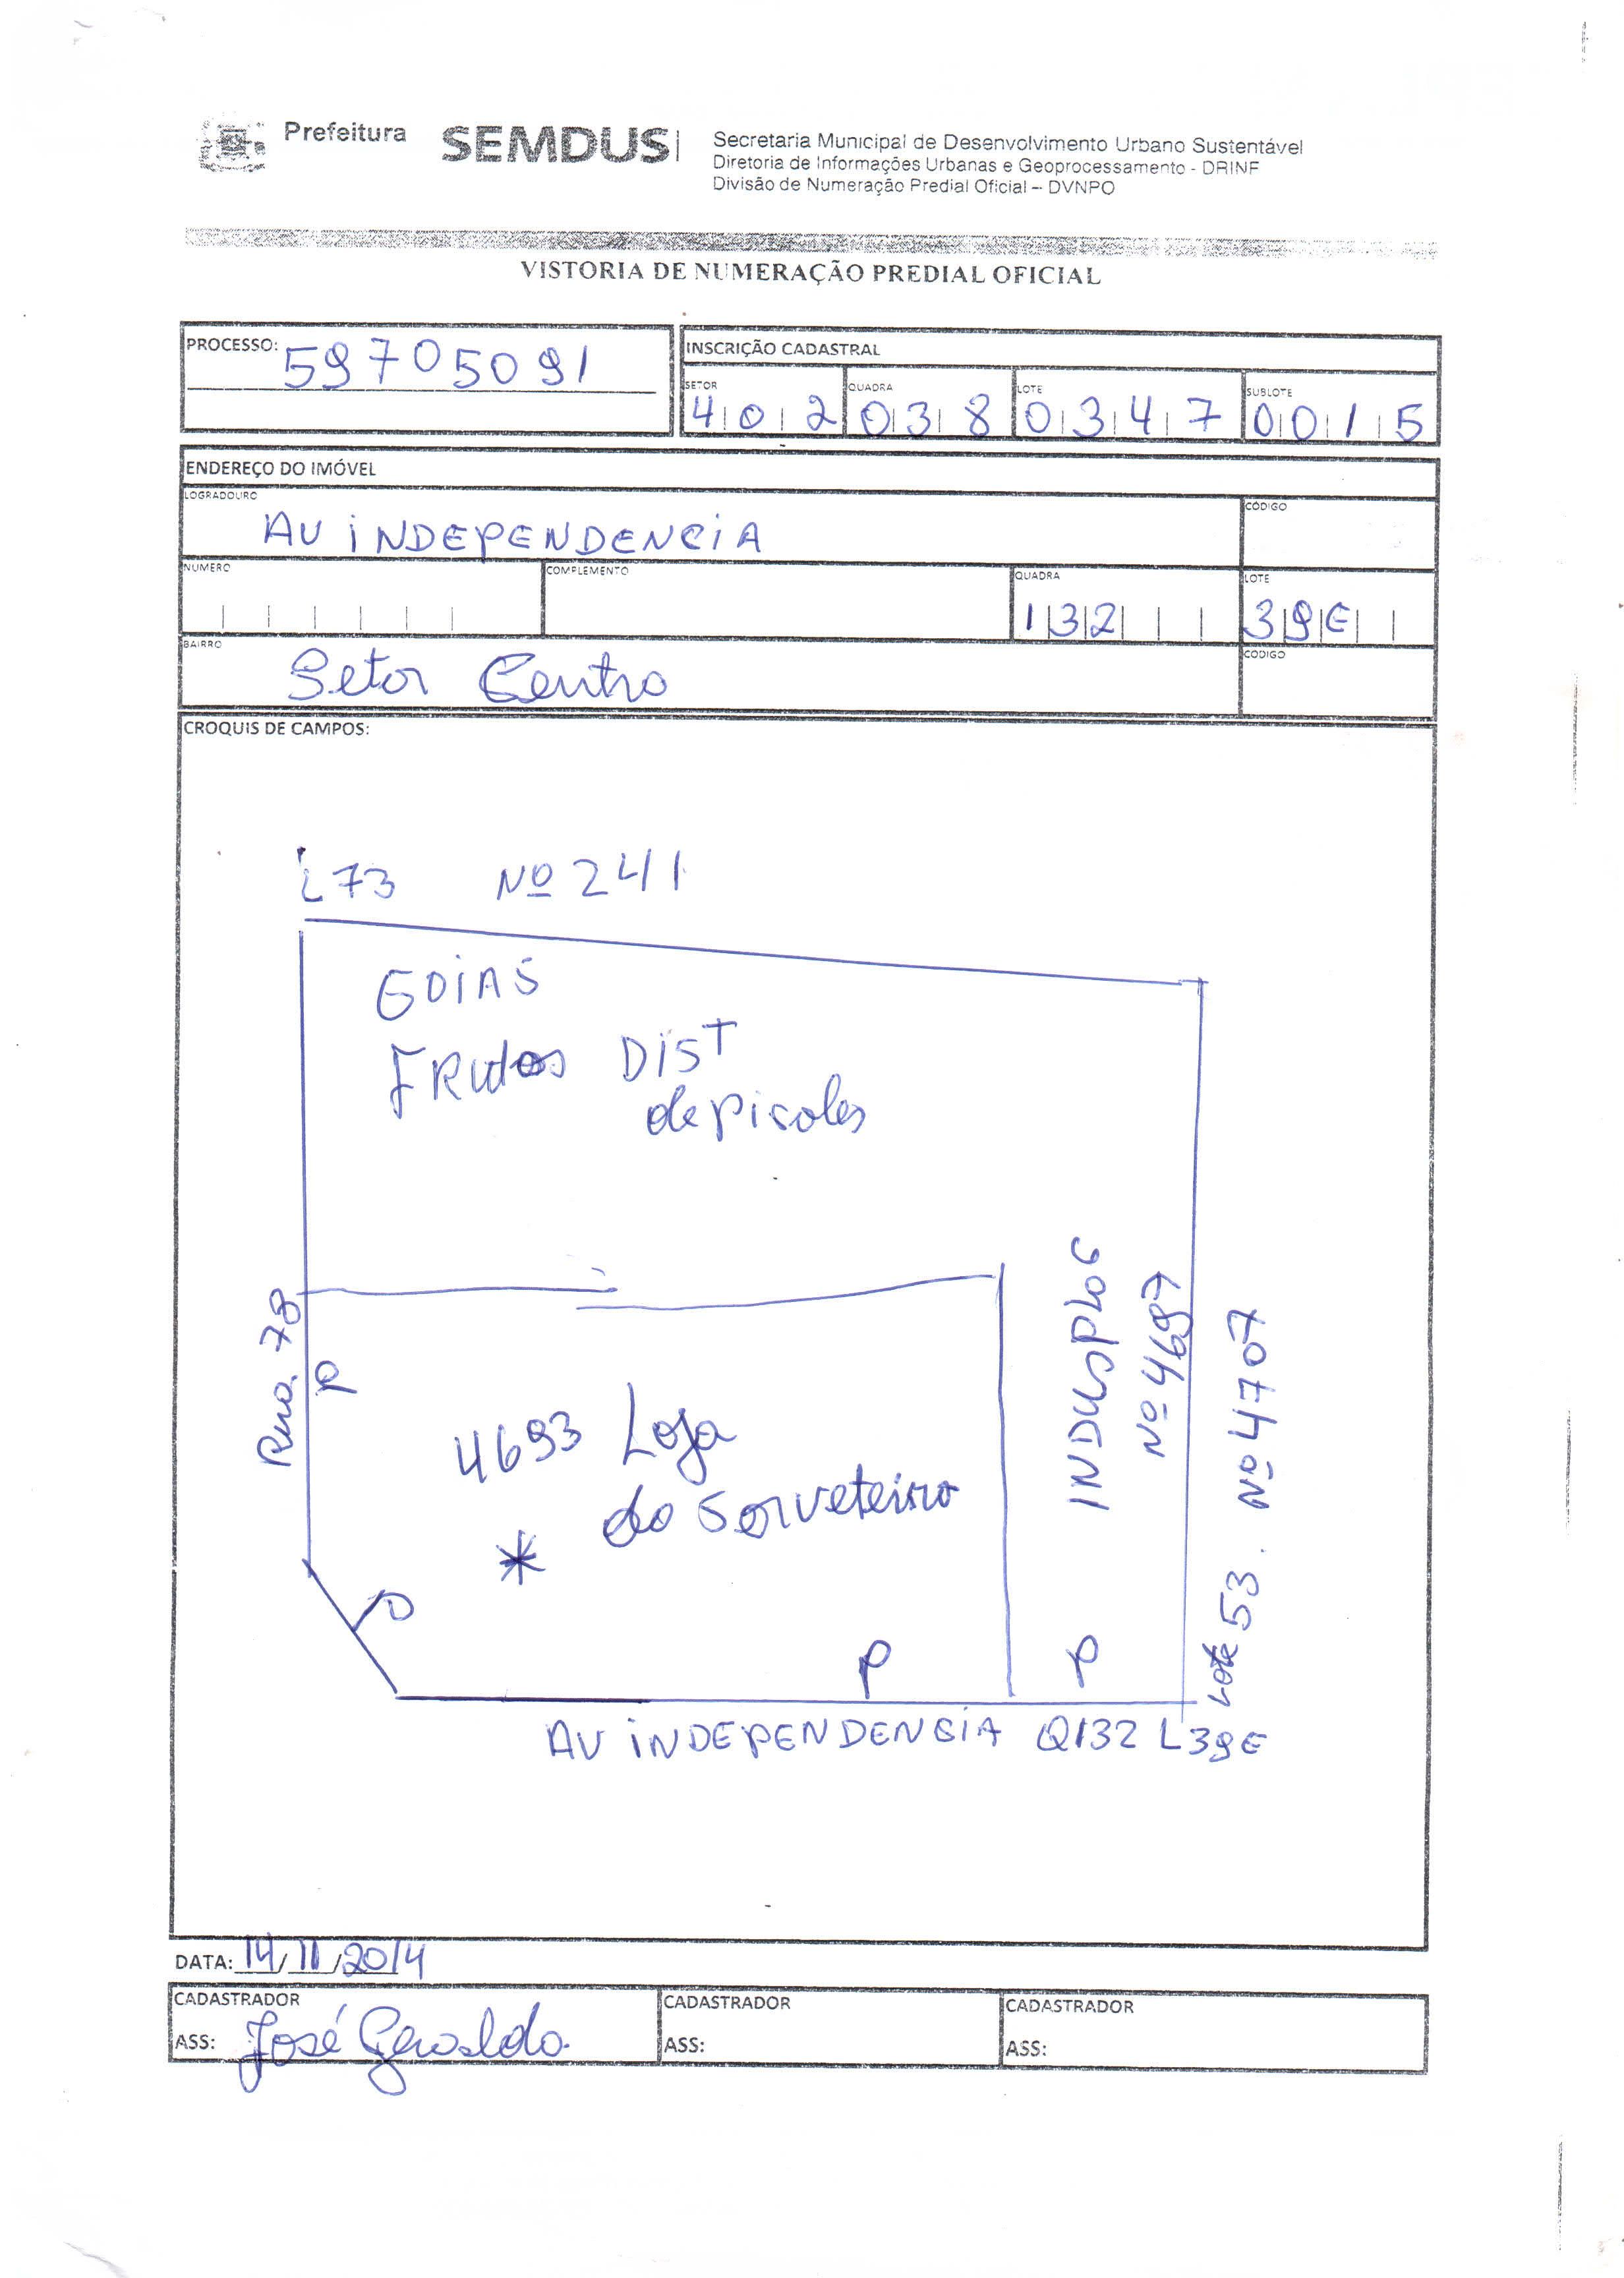 Prefeitura SEMDUS
Secretaria Municipal de Desenvolvimento Urbano Sustentável
Diretoria de Informações Urbanas e Geoprocessamento - DRINF
Divisão de Numeração Predial Oficial – DVNPO
VISTORIA DE NUMERAÇÃO PREDIAL OFICIAL
PROCESSO: 59705091
INSCRIÇÃO CADASTRAL
SETOR QUADRA LOTE SUBLOTE
402 038 0347 0015
ENDEREÇO DO IMÓVEL
LOGRADOURO CÓDIGO
AV INDEPENDENCIA
NUMERO COMPLEMENTO QUADRA LOTE
132 39E
BAIRRO CÓDIGO
Setor Centro
CROQUIS DE CAMPOS:
L73 Nº 241
GOIAS
FRUtos DIST
de picoles
Rua 78
P
4693 Loja
do Sorveteiro
*
P
P
P
INDUSPLOG
Nº 4697
Lote 53. Nº 4707
AV INDEPENDENCIA Q132 L39E
DATA: 14/11/2014
CADASTRADOR CADASTRADOR CADASTRADOR
ASS: José Geraldo. ASS: ASS: